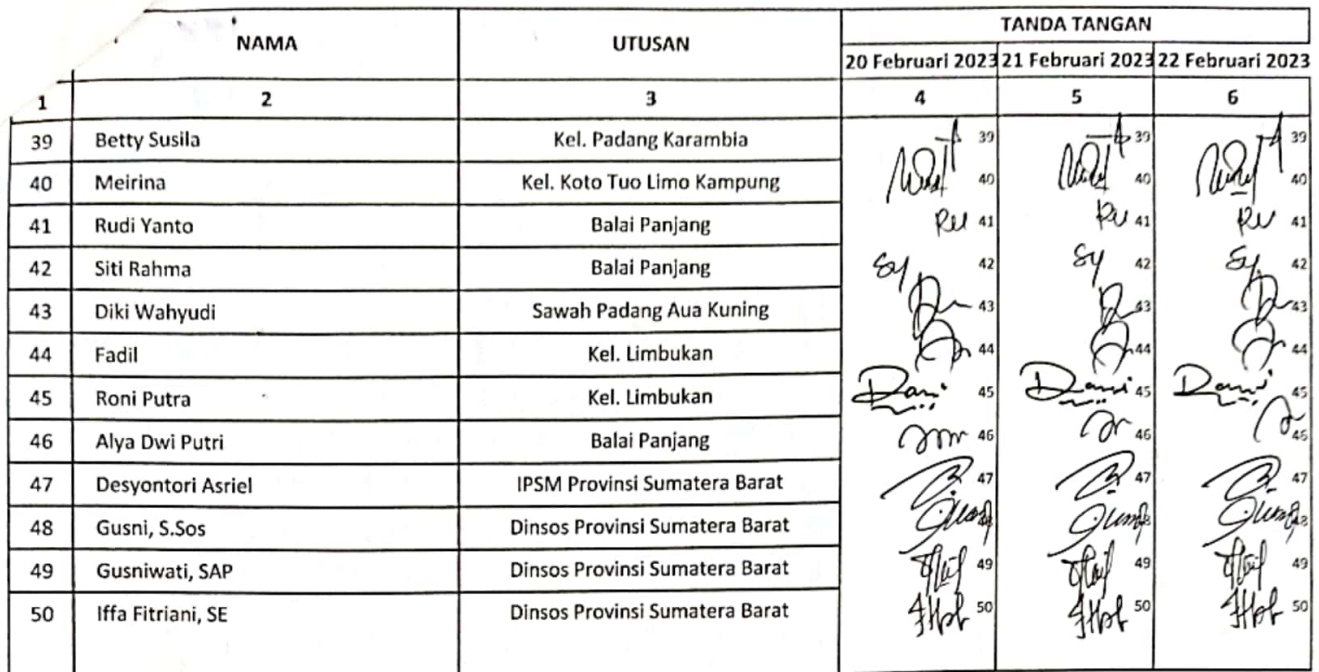 NAMA UTUSAN TANDA TANGAN
20 Februari 2023 21 Februari 2023 22 Februari 2023
1 2 3 4 5 6
39 Betty Susila Kel. Padang Karambia 39 39 39
40 Meirina Kel. Koto Tuo Limo Kampung 40 40 40
41 Rudi Yanto Balai Panjang 41 41 41
42 Siti Rahma Balai Panjang 42 42 42
43 Diki Wahyudi Sawah Padang Aua Kuning 43 43 43
44 Fadil Kel. Limbukan 44 44 44
45 Roni Putra Kel. Limbukan 45 45 45
46 Alya Dwi Putri Balai Panjang 46 46 46
47 Desyontori Asriel IPSM Provinsi Sumatera Barat 47 47 47
48 Gusni, S.Sos Dinsos Provinsi Sumatera Barat
49 Gusniwati, SAP Dinsos Provinsi Sumatera Barat 49 49 49
50 Iffa Fitriani, SE Dinsos Provinsi Sumatera Barat 50 50 50